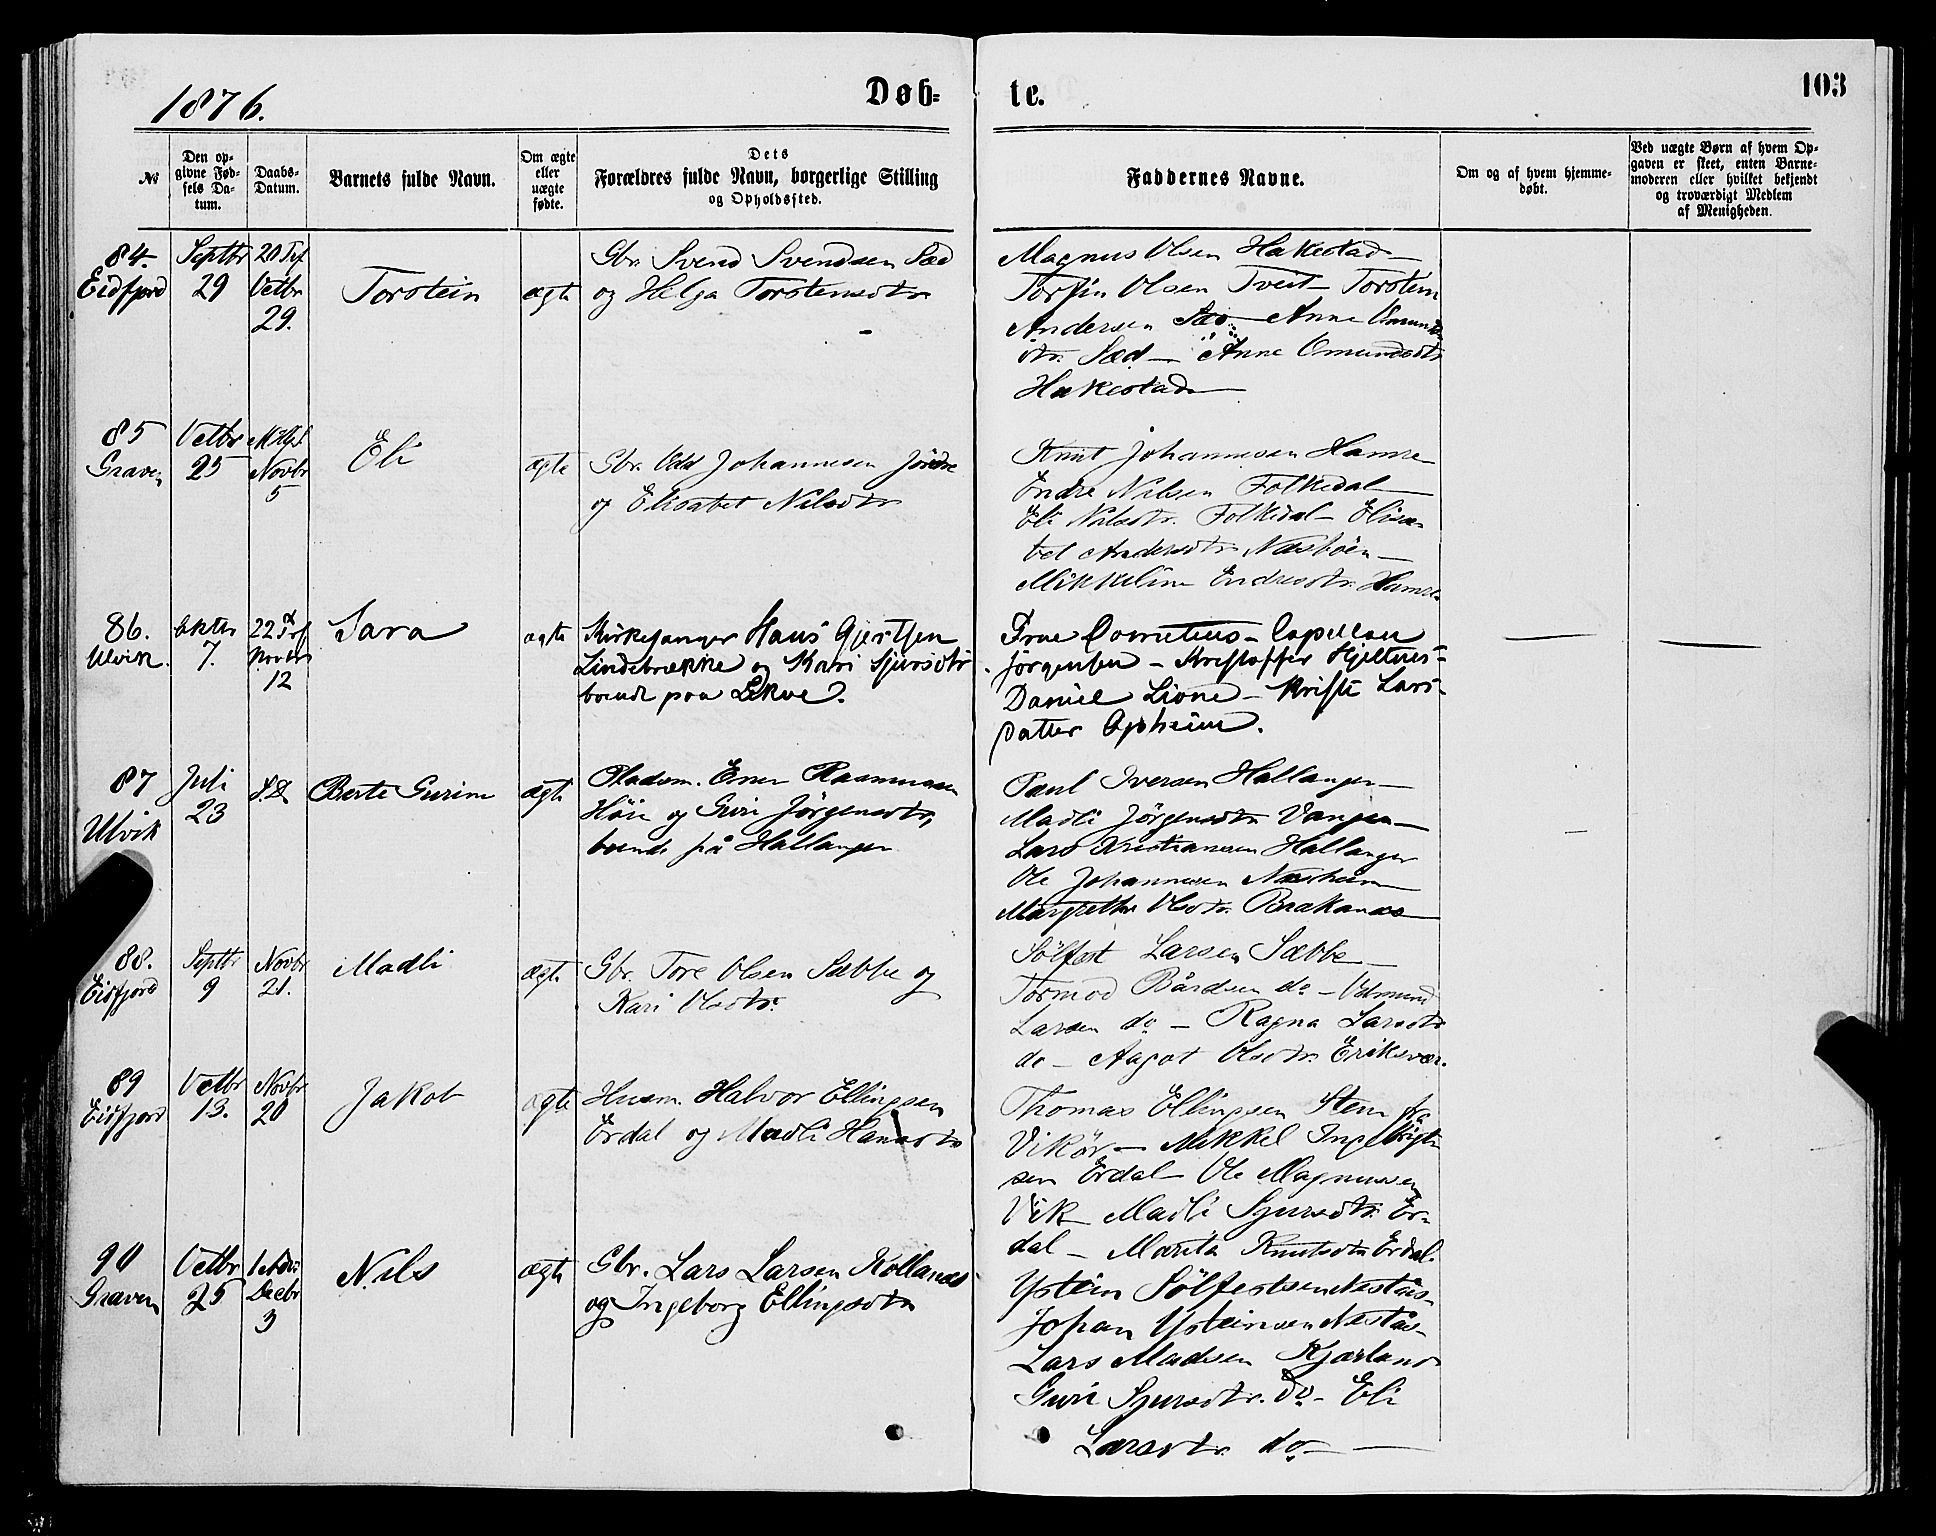 1876.
Døb-
te.
103
№
Den op-
givne Fød-
sels Da-
tum.
Daabs-
Datum.
Barnets fulde Navn.
Om ægte
eller
uægte
fødte.
Dets
Forældres fulde Navn, borgerlige Stilling
og Opholdssted.
Faddernes Navne.
Om og af hvem hjemme-
døbt.
Ved uægte Børn af hvem Op-
gaven er skeet, enten Barne-
moderen eller hvilket bekjendt
og troværdigt Medlem
af Menigheden.
84.
Eidfjord
Septbr
29
20 Trf
Octbr
29.
Torstein
ægte
Gbr. Svend Svendsen Sæd
og Helga Torstensdtr
Magnus Olsen Hakestad
Torfin Olsen Tveit Torstein
Andersen Sæd Anne Omunds
dtr. Sæd - Anne Omundsdtr
Hakestad
85
Graven
Octbr
25
Novbr
5
Eli
ægte
Gbr. Odd Johannesen Jördre
og Elisabet Nilsdtr
Knut Johannesen Hamre
Endre Nilsen Folkedal
Eli Nilsdtr. Folkedal - Elisa-
bet Andersdtr Næsböen -
Mikkeline Endresdtr. Hamre
86.
Ulvik.
Oktbr
7.
22 Trf
Novbr
12
Sara
ægte
Kirkesanger Hans Gjertsen
Lindebrække og Kari Sjursdtr
boende paa Lekve.
Frue Cornelius - Capellan
Jørgensen - Kristoffer Hjeltnes -
Daniel Lione - Kristi Lars-
datter Opheim.
87
Ulvik
Juli
23
s.D
Berte Gurine
ægte
Pladsm. Einer Rasmussen
Höie og Guri Jörgensdtr,
boende på Hallanger
Paul Iversen Hallanger -
Madli Jörgensdtr Vangen -
Lars Kristiansen Hallanger
Ole Johannesen Næsheim
Margrethe Olsdtr. Brakanæs
88.
Eidfjord
Septbr
9
Novbr
21.
Madli
ægte
Gbr. Tore Olsen Sæbbe og
Kari Olsdtr.
Sölfest Larsen Sæbbe -
Tormod Bårdsen do - Odmund
Larsen do - Ragna Larsdtr
do - Aagot Olsdtr. Eriksvær.
89
Eidfjord
Octbr
13.
Novbr
20
Jakob
ægte
Husm. Halvor Ellingsen
Erdal og Madli Hansdtr
Thomas Ellingsen Stein fra
Vikör - Mikkel Ingebrigt
sen Erdal - Ole Magnussen
Vik Madli Sjursdtr. Er-
dal - Marita Knutsdtr Erdal.
90
Graven
Octbr
25
1 Adv.
Decbr
3
Nils
ægte
Gbr. Lars Larsen Kollanes
og Ingeborg Ellingsdtr
Ystein Sölfestsen Nestås -
Johan Ysteinsen Nestås -
Lars Madsen Kjærland
Guri Sjursdtr. do - Eli
Larsdtr. do -